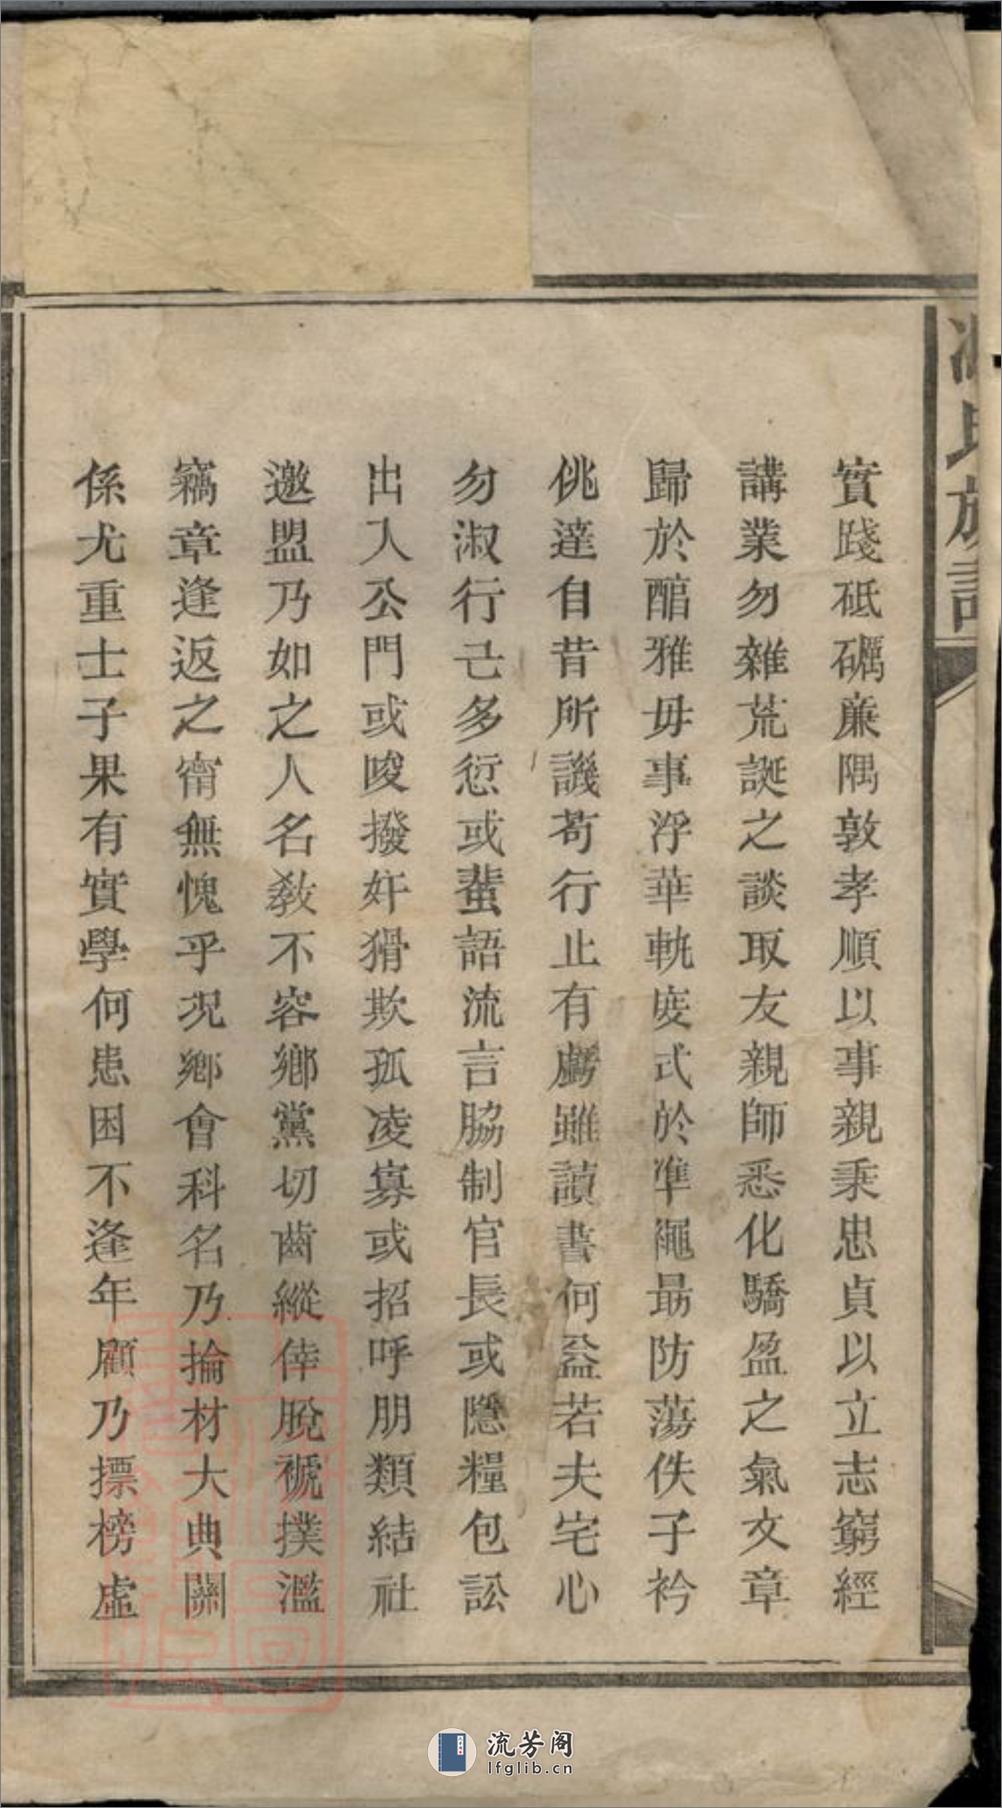 實踐砥礪廉隅敦孝順以事親秉忠貞以立志窮經
講業勿雜荒誕之談取友親師悉化驕盈之氣文章
歸於醇雅毋事浮華軌度式於準繩最防蕩佚子衿
佻達自昔所譏苟行止有虧雖讀書何益若夫宅心
勿淑行己多愆或蜚語流言脇制官長或隱糧包訟
出入公門或唆撥奸猾欺孤凌寡或招呼朋類結社
邀盟乃如之人名教不容鄉黨切齒縱倖脫褫撲濫
竊章逢返之甯無愧乎況鄉會科名乃掄材大典關
係尤重士子果有實學何患困不逢年顧乃摽榜虛
氏族譜
流芳阁
lfglib.cn